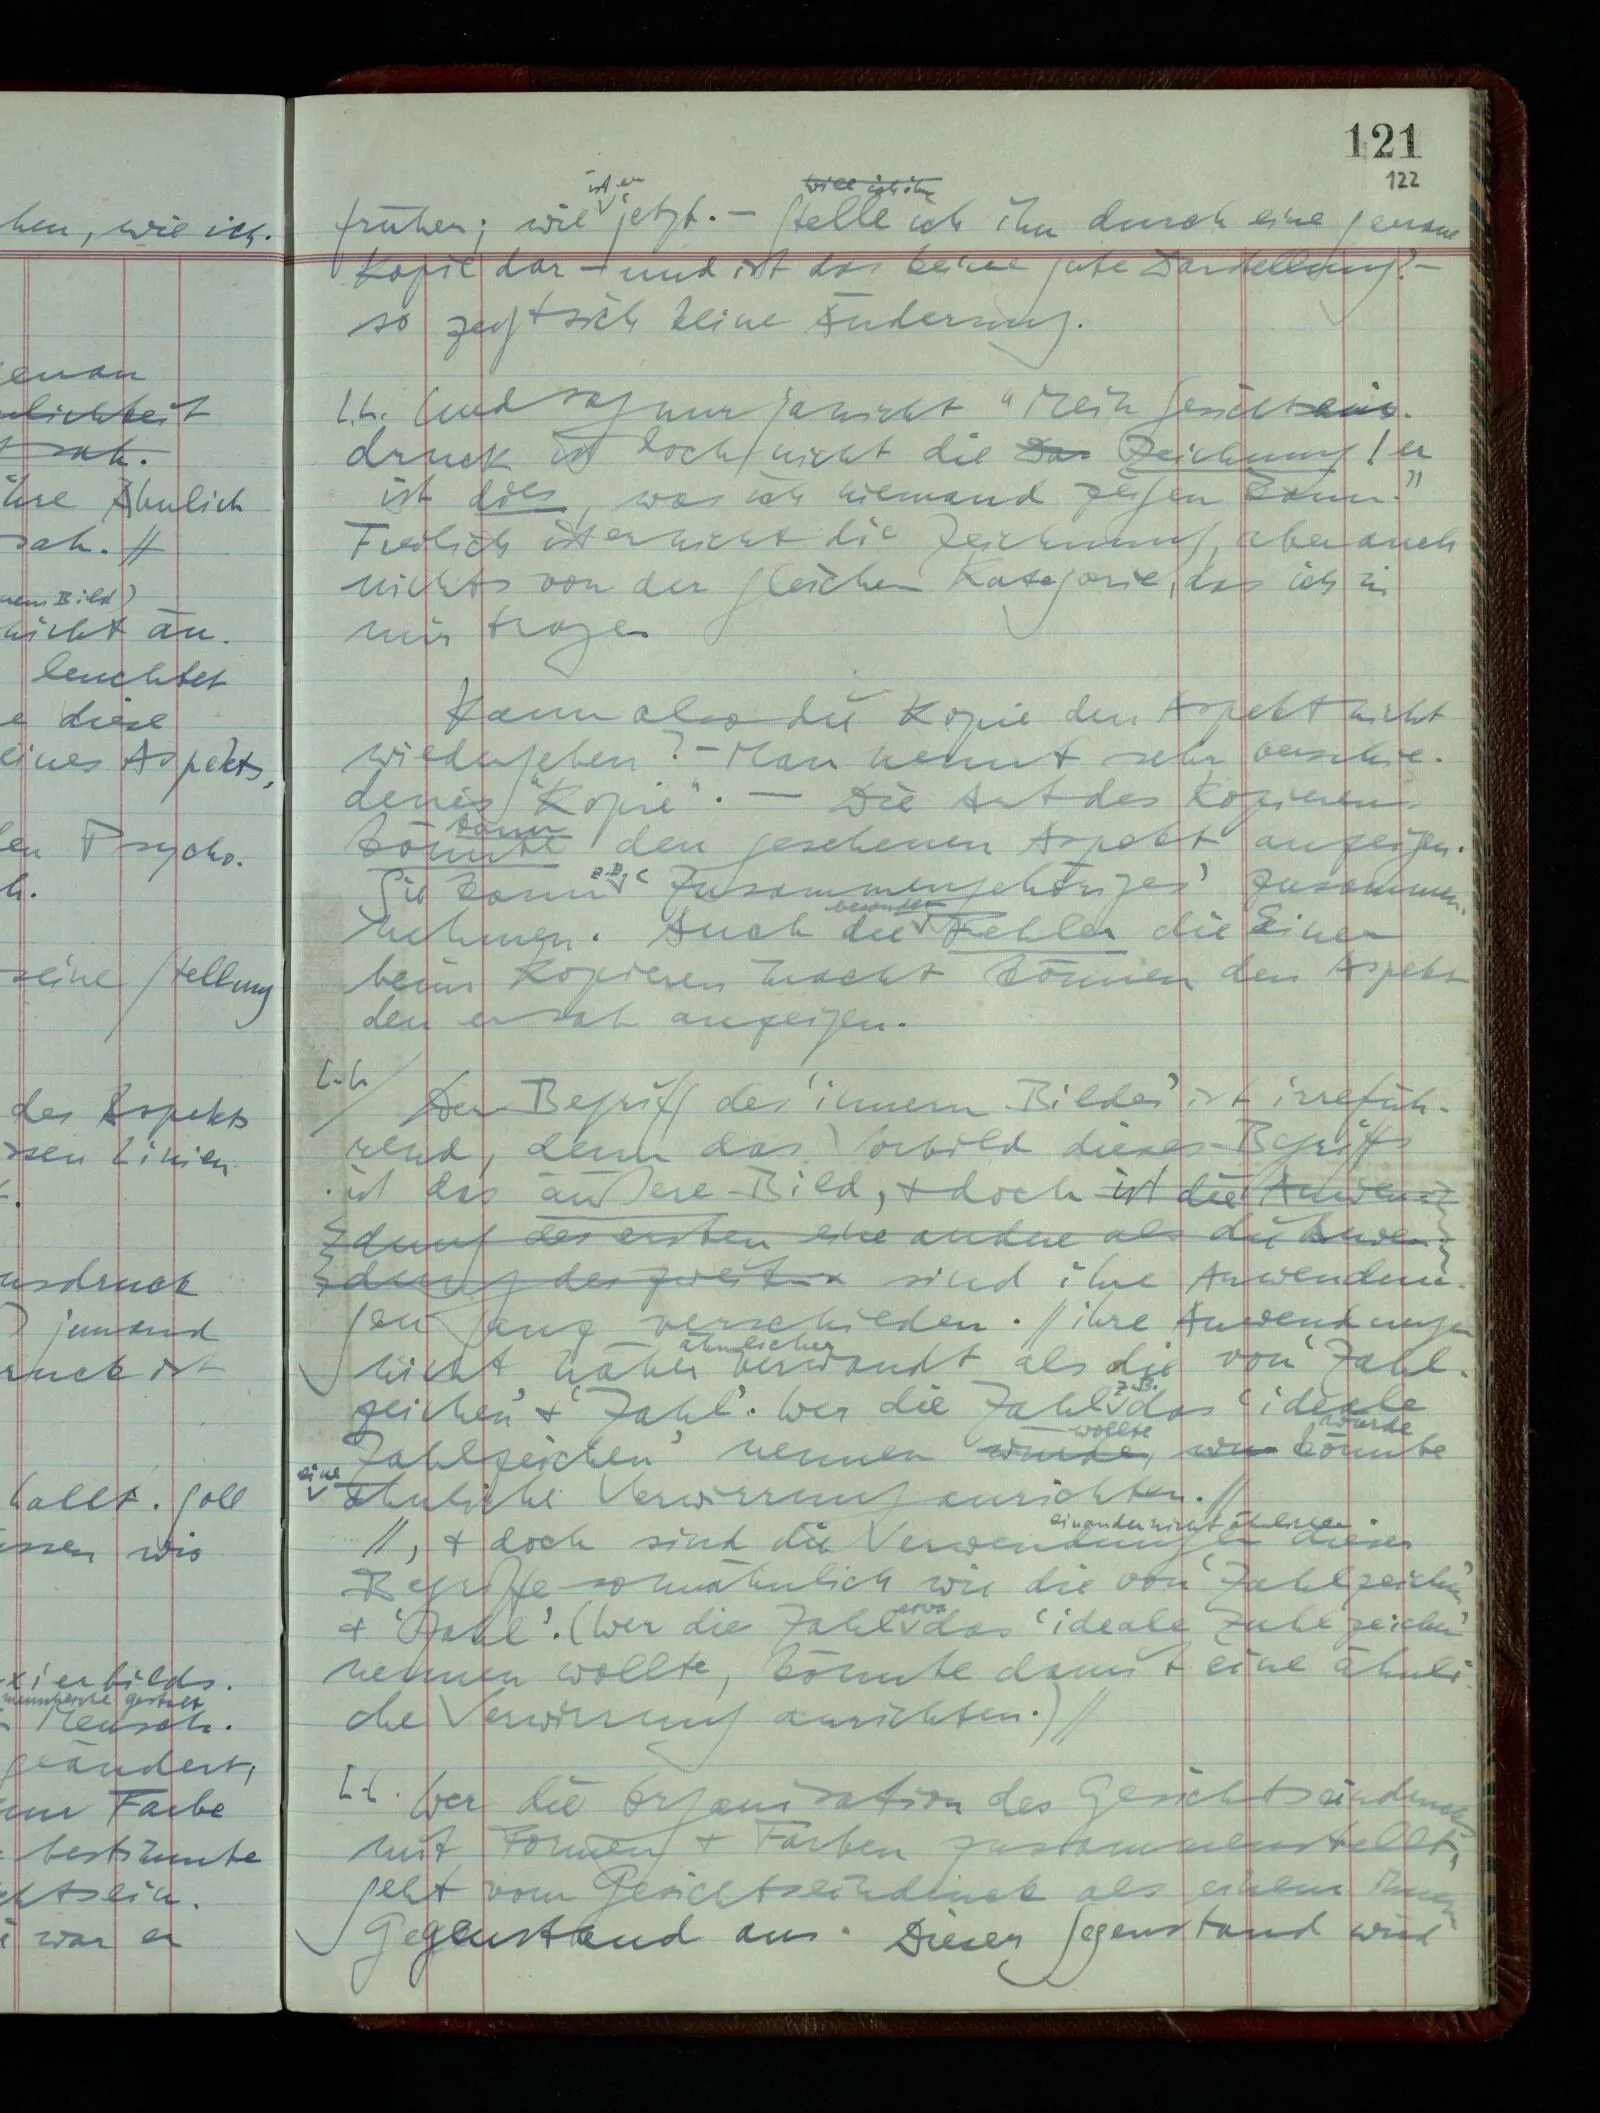 hen, wie ich.
enau
nlichkeit
sah.
ihre Ähnlich
sah. //
nem Bild)
nicht an.
leuchtet
e diese
eines Aspekts,
en Psycho-
h.
seine Stellung
des Aspekts
ssen Linien
usdruck
jemand
ruck ist
hallt. Soll
issen wie
xierbilds.
menschliche Gestalt
Mensch.
geändert,
nur Farbe
bestimmte
chtsein.
war er
121
122
ist er will ich ihn
früher; wie jetzt. – Stelle ich ihn durch eine genaue
Kopie dar – und ist das keine gute Darstellung? –
so zeigt sich keine Änderung.
Und sag nur ja nicht "Mein Gesichtsein-
druck ist doch nicht die Das Zeichnung! er
ist dies, was ich niemand zeigen kann."
Freilich ist er nicht die Zeichnung, aber auch
nichts von der gleichen Kategorie, das ich in
mir trage
Kann also die Kopie den Aspekt nicht
wiedergeben? – Man nennt sehr verschie-
denes "Kopie". — Die Art des Kopierens
kann
könnte den gesehenen Aspekt anzeigen.
z.B.
Sie kann 'Zusammengehöriges' zusammen-
besondern
nehmen. Auch die Fehler die Einer
beim Kopieren macht können den Aspekt
den er sah anzeigen.
Der Begriff des 'innern Bildes' ist irrefüh-
rend, denn das Vorbild dieses Begriffs
ist das äußere Bild, & doch ist die Anwen-
dung des ersten eine andere als die Anwen-
dung des zweiten sind ihre Anwendun-
gen ganz verschieden. // ihre Anwendungen
ähnlicher
nicht näher verwandt als die von 'Zahl-
z.B.
zeichen' & 'Zahl'. Wer die Zahl das 'ideale
wollte würde
Zahlzeichen' nennen würde, könnte
eine
ähnliche Verwirrung anrichten. //
einander nicht ähnlicher
//, & doch sind die Verwendungen dieser
Begriffe so unähnlich wie die von 'Zahlzeichen'
etwa
& 'Zahl'. (Wer die Zahl das 'ideale Zahlzeichen'
nennen wollte, könnte damit eine ähnli-
che Verwirrung anrichten.) //
Wer die Organisation des Gesichtseindrucks
mit Formen & Farben zusammenstellt,
geht vom Gesichtseindruck als einem innern
Gegenstand aus. Dieser Gegenstand wird